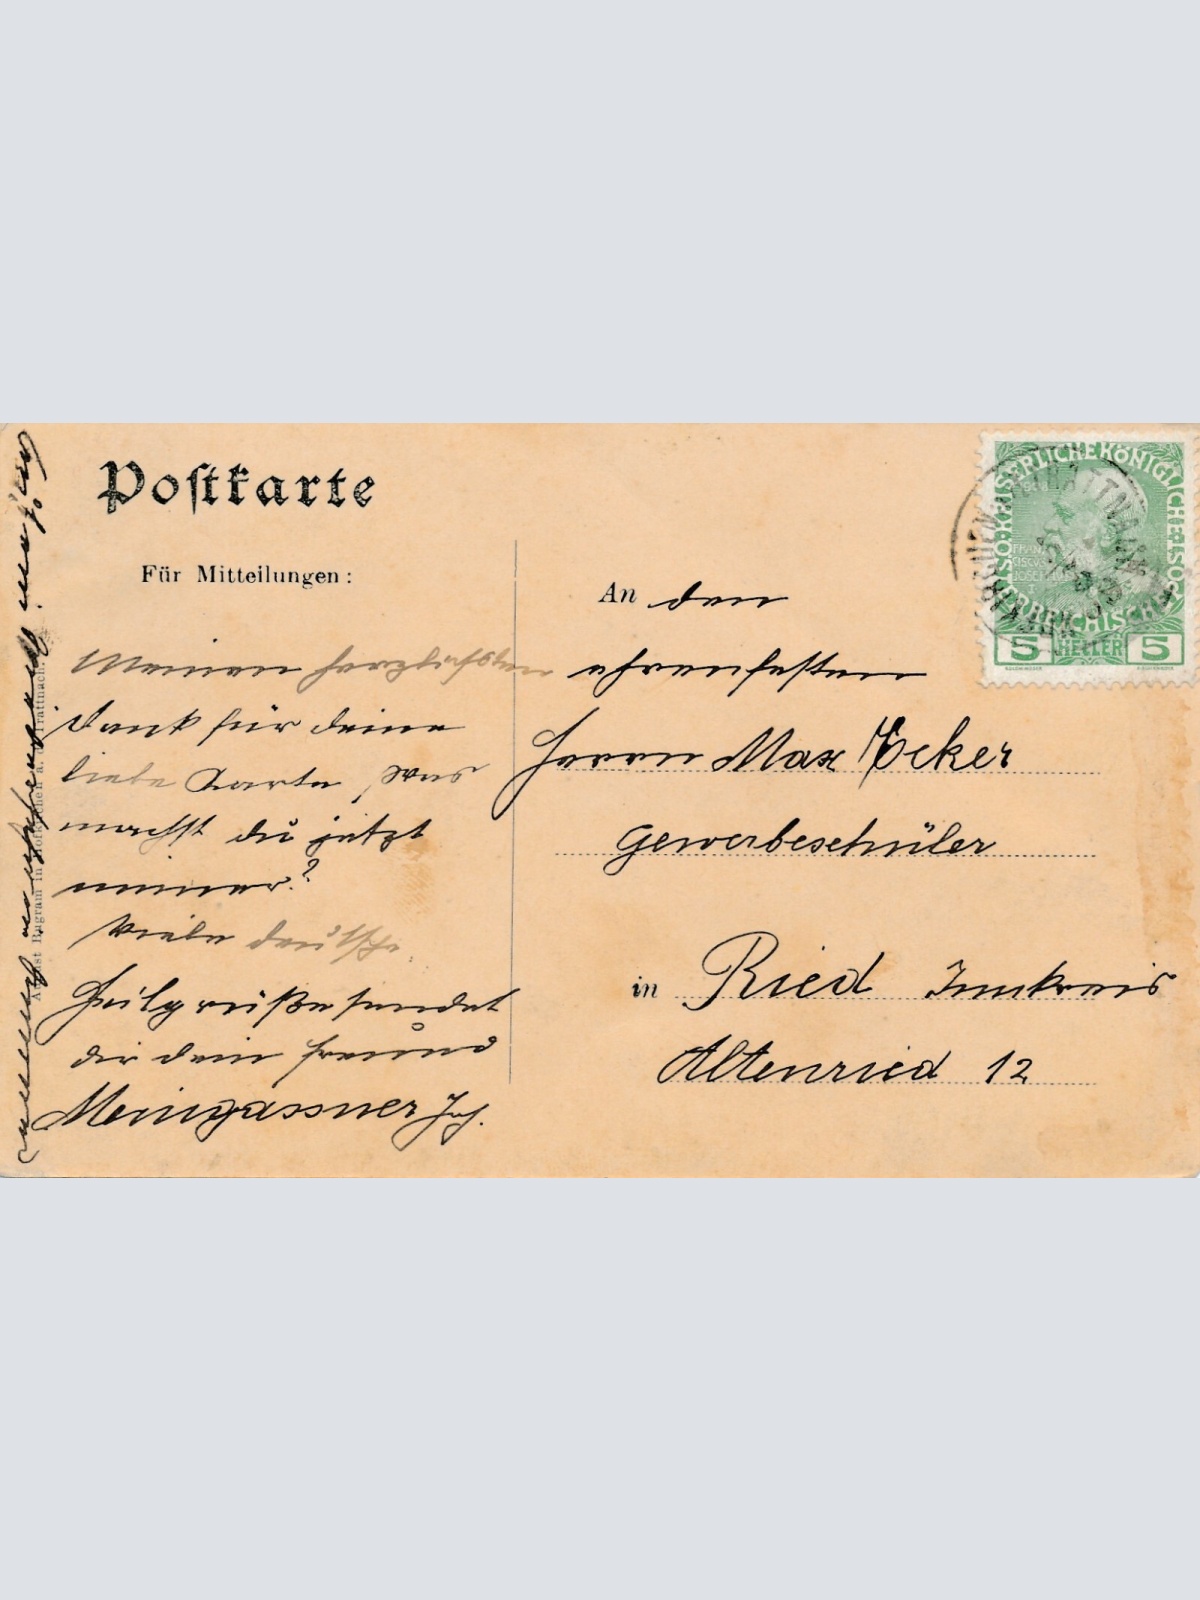 Postkarte
Für Mitteilungen:
Meinen herzlichsten
Dank für deine
liebe Karte, was
machst du jetzt
immer?
Viele deutsche
Heilgrüße sendet
dir dein Freund
Meingassner Joh.
An den
ehrenfesten
Herrn Max Ecker
Gewerbeschüler
in Ried Innkreis
Altenried 12
KAISERLICHE KÖNIGLICHE
ÖSTERREICHISCHE
5 HELLER 5